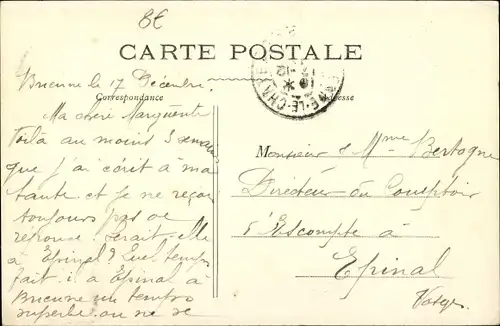 8€
CARTE POSTALE
Brienne le 17 Décembre.
Correspondance
Adresse
NE-LE-CHA
Ma chere Marguerite
Voilà au moins 3 semaines
que j'ai écrit à ma
tante et je ne reçois
toujours pas de
réponse. Serait elle
à Epinal? Quel temps
fait-il à Epinal à
Brienne un temps
superbe on ne se
Monsieur & Mme Bertogne
Directeur du Comptoir
d'Escompte à
Epinal
Vosges